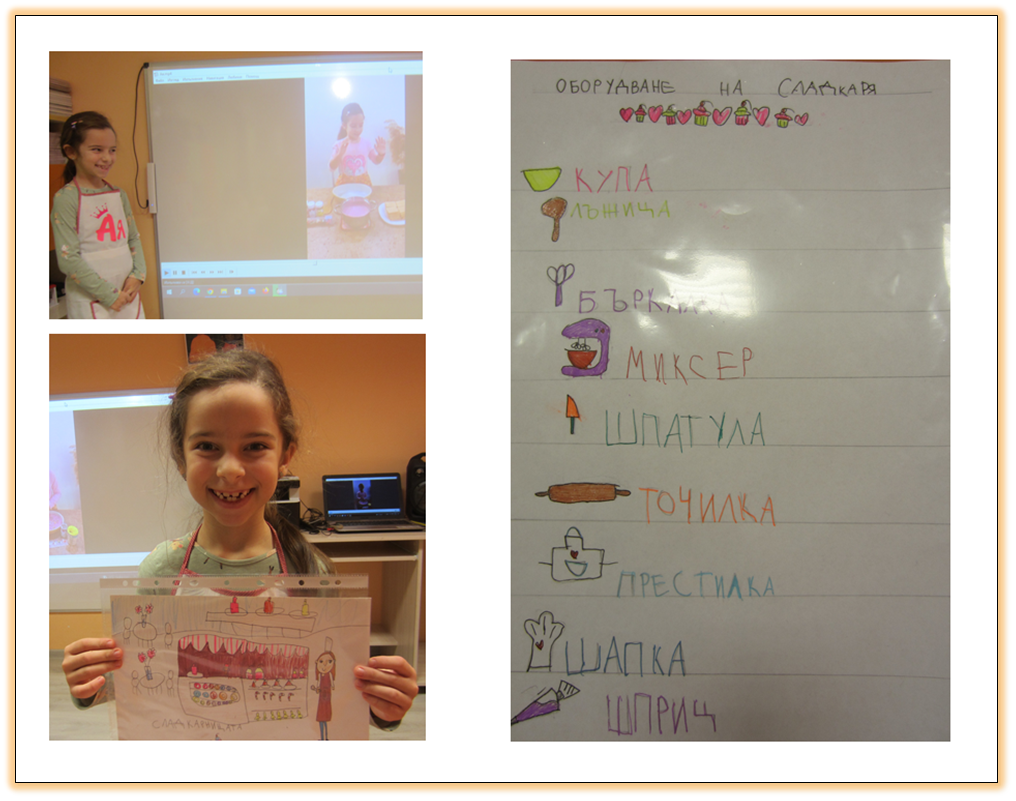 Ая
СЛАДКАРНИЦАТА
ОБОРУДВАНЕ НА СЛАДКАРЯ
КУПА
ЛЪЖИЦА
БЪРКАЛКА
МИКСЕР
ШПАТУЛА
ТОЧИЛКА
ПРЕСТИЛКА
ШАПКА
ШПРИЦ